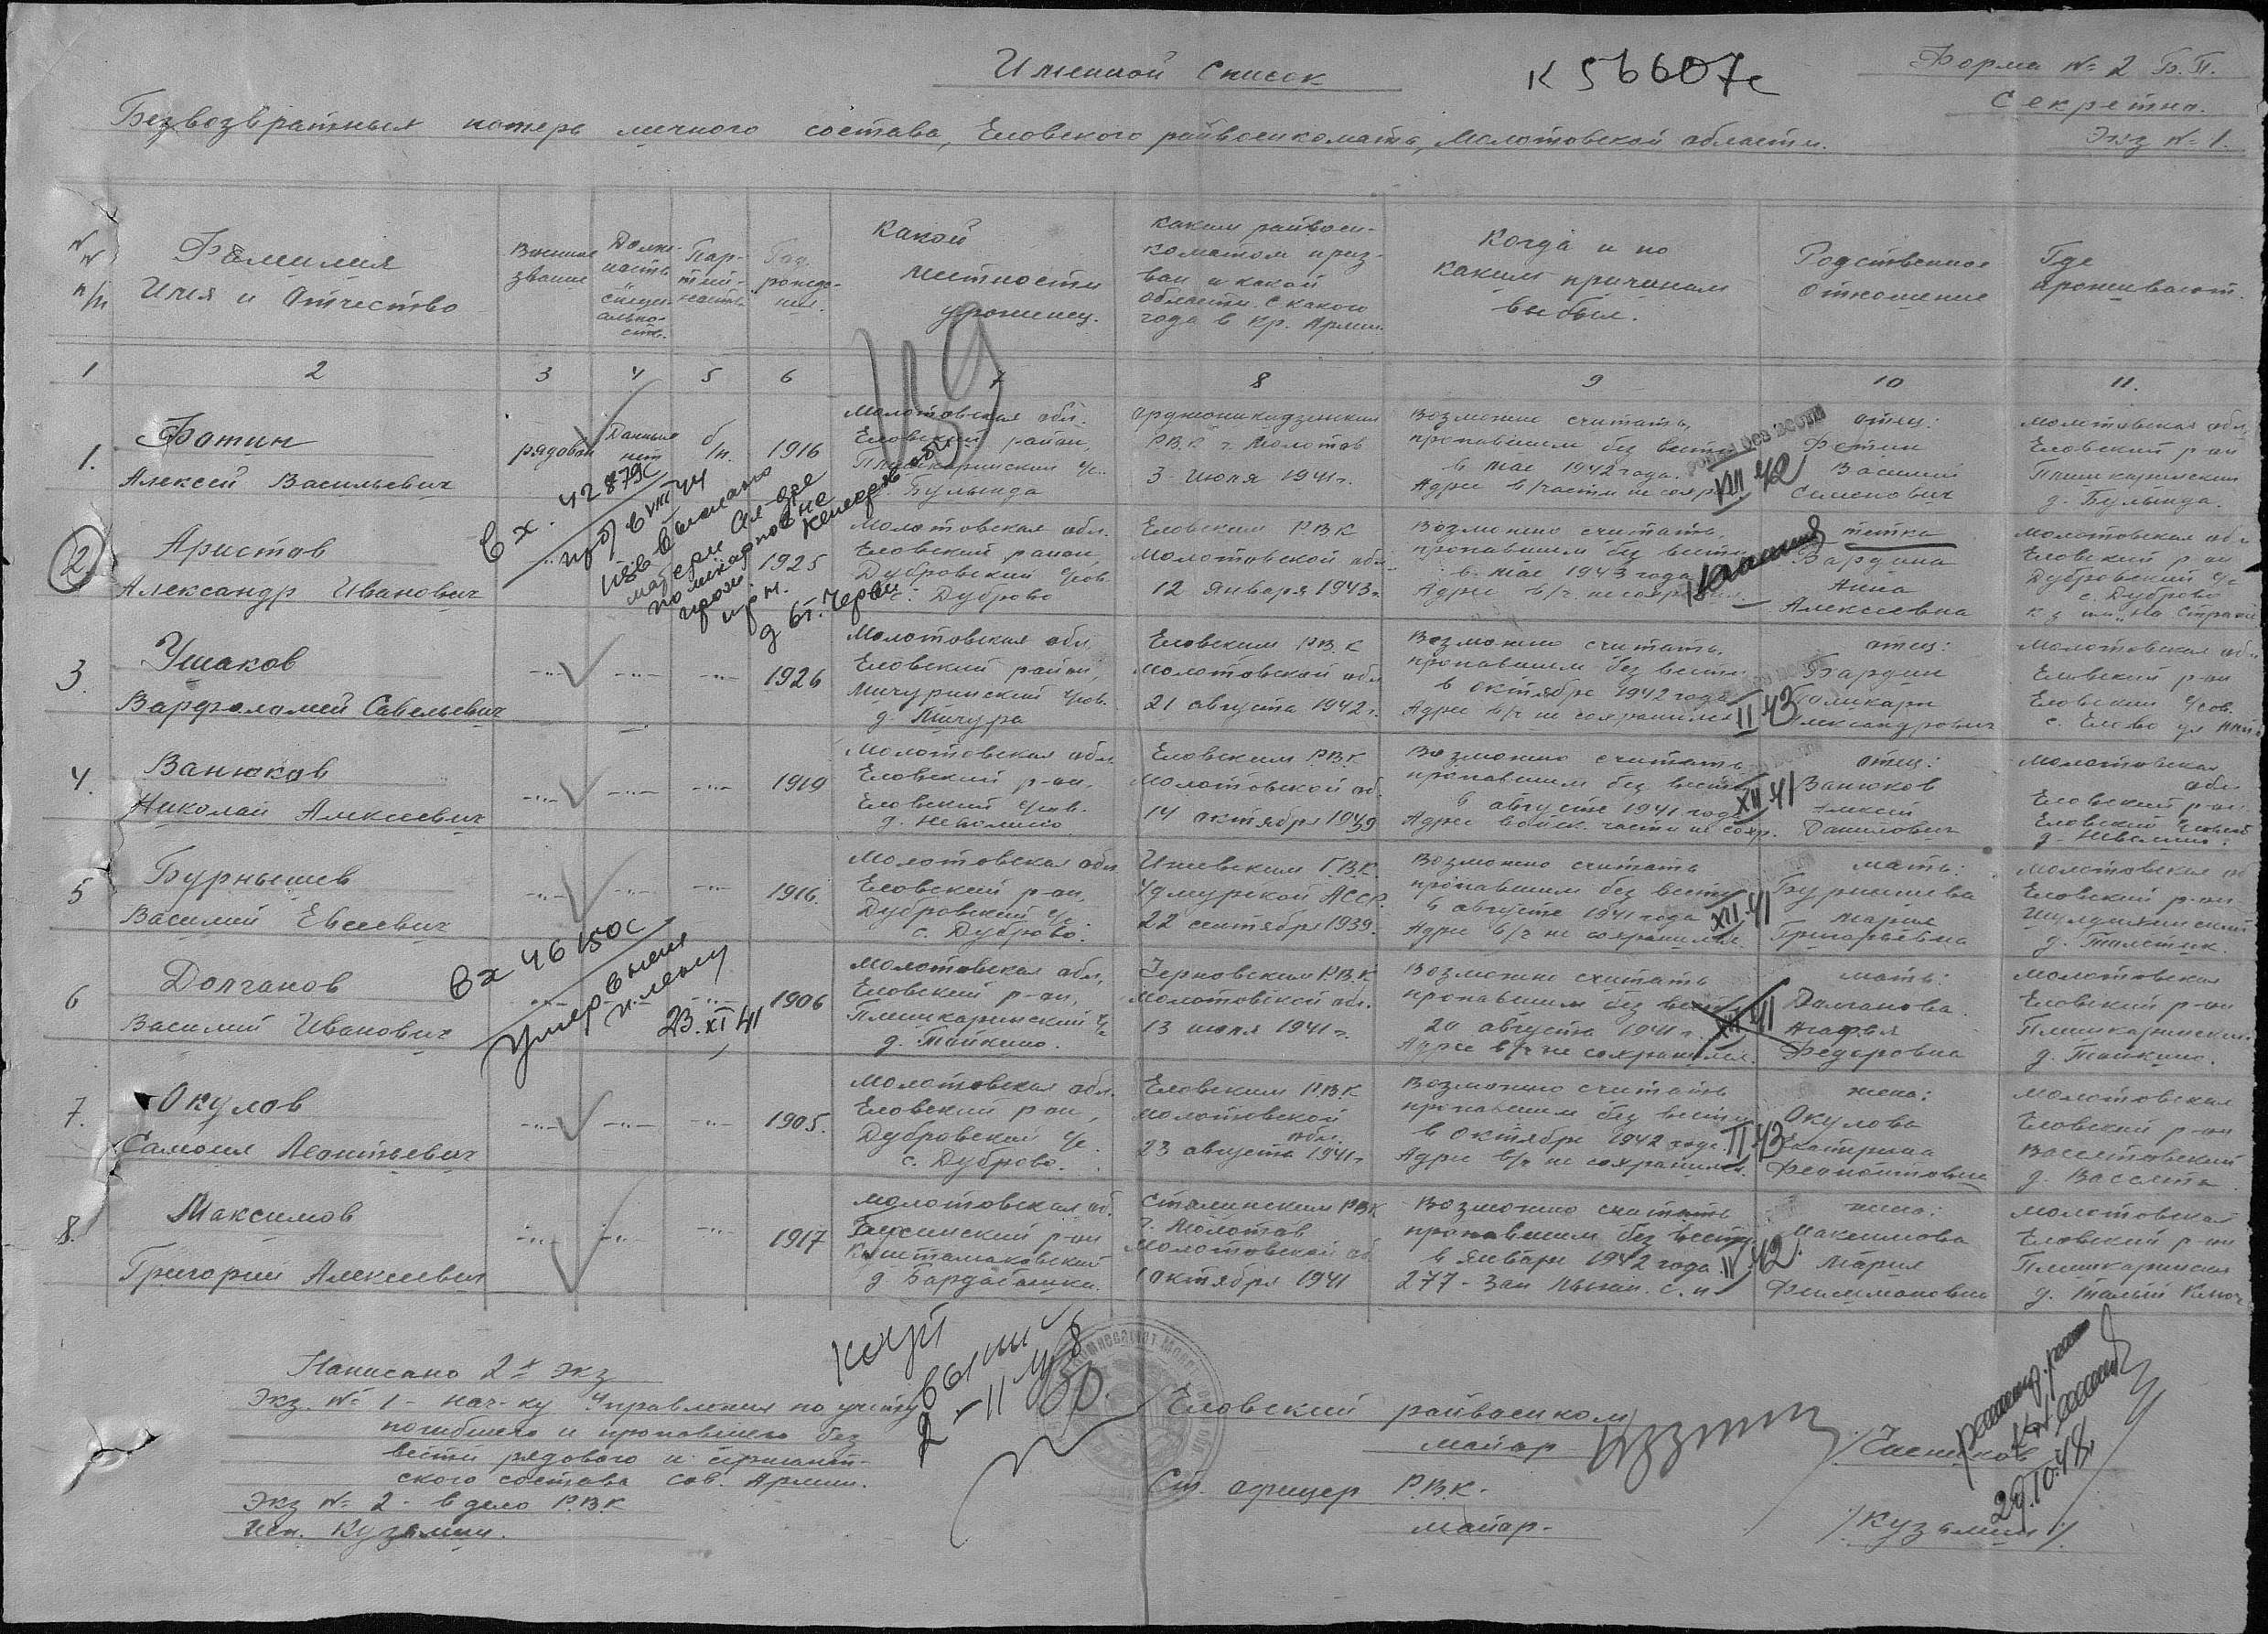 Именной список
К 56607с
Форма № 2 Б.П.
Секретно.
Экз № 1.
Безвозвратных потерь личного состава, Еловского райвоенкомата, Молотовской области.
№ № п/п
Фамилия
Имя и Отчество
Военное звание
Должность специальность
Партийность
Год рождения
Какой
местности
уроженец.
Каким райвоен-
коматом приз-
ван и какой
области. С какого
года в Кр. Армии.
Когда и по
каким причинам
выбыл.
Родственное
отношение
Где
проживают.
1 2 3 4 5 6 7 8 9 10 11.
1.
Фотин
Алексей Васильевич
рядовой
Данных нет
б/п.
1916
Молотовская обл.
Еловский район,
Плишкаринский с/с.
д. Булында
Орджоникидзенским
Р.В.К. г. Молотов
3 июля 1941 г.
Возможно считать
пропавшим без вести
в мае 1942 года.
Адрес в/части не сохр.
VIII 42
отец:
Фотин
Василий
Семенович
Молотовская обл.
Еловский р-он
Плишкаринский
д. Булында.
Вх. 42879с
2
Аристов
Александр Иванович
1925
Молотовская обл.
Еловский район,
Дубровский с/сов.
с. Дуброво
Еловским РВК
Молотовской обл.
12 января 1943 г.
Возможно считать
пропавшим без вести
в мае 1943 года
Адрес в/ч. не сохранился
тетка
Вардина
Анна
Алексеевна
Молотовская обл.
Еловский р-он
Дубровский с/с
с. Дуброво
к-з им. "На Страже
3.
Ушаков
Варфоломей Савельевич
-"- -"- -"-
1926
Молотовская обл,
Еловский район,
Мичуринский с/сов.
д. Мичура
Еловским РВ.К
Молотовской обл
21 августа 1942 г.
Возможно считать
пропавшим без вести
в октябре 1942 года
Адрес в/ч не сохранился
II 43
отец:
Бардин
Поликарп
Александрович
Молотовская обл
Еловский р-он
Еловский с/сов.
с. Елово
4.
Ванюков
Николай Алексеевич
-"- -"- -"-
1919
Молотовская обл.
Еловский р-он,
Еловский с/сов.
д. Неволино
Еловским РВК
Молотовской об.
14 октября 1939
Возможно считать
пропавшим без вести
в августе 1941 года
Адрес войск. части не сохр.
XII 41
отец:
Ванюков
Алексей
Данилович
Молотовская
обл.
Еловский р-он
Еловский
д. Неволино.
5
Бурнышев
Василий Евсеевич
-"- -"- -"-
1916.
Молотовская обл
Еловский р-он,
Дубровский с/с
с. Дуброво.
Ижевским Г.В.К.
Удмурской АССР.
22 сентября 1939.
Возможно считать
пропавшим без вести
в августе 1941 года
Адрес в/ч не сохранился.
XII. 41
мать:
Бурнышева
Мария
Григорьевна
Молотовская об
Еловский р-он
д. Толстик.
6
Долганов
Василий Иванович
Вх 46150с
Умер в немец плену
23.XI 41
1906
Молотовская обл,
Еловский р-он,
Плишкаринский с/с
д. Тойкино.
Черновским РВ.К
Молотовской обл.
13 июля 1941 г.
Возможно считать
пропавшим без вести
20 августа 1941 г.
Адрес в/ч не сохранился.
XII 41
мать:
Долганова
Агафья
Федоровна
Молотовская
Еловский р-он
Плишкаринский
д. Тойкино.
7.
Окулов
Самоил Леонтьевич
-"- -"- -"-
1905.
Молотовская обл.
Еловский р-он,
Дубровский с/с.
с. Дуброво.
Еловским РВ.К
Молотовской
обл.
23 августа 1941 г.
Возможно считать
пропавшим без вести
в октябре 1942 года.
Адрес в/ч не сохранился.
II 43
жена:
Окулова
Екатерина
Молотовская
Еловский р-он
д. Вассята
8.
Максимов
Григорий Алексеевич
-"- -"- -"-
1917
Молотовская об.
р-он
Куштамаковский
д Бардабашка.
Сталинским РВК
г. Молотов
Молотовской об
1 октября 1941
Возможно считать
пропавшим без вести.
в январе 1942 года.
277 - Зап лыжн. с. п.
IV 42.
жена:
Максимова
Мария
Филимоновна
Молотовская
Еловский р-он
Плишкаринский
д. Малый Ключ
Написано 2х экз
Экз. № 1 - нач-ку Управления по учёту
погибшего и пропавшего без
вести рядового и сержант-
ского состава Сов. Армии.
Экз № 2 - в дело Р.В.К
Исп. Кузьмин.
2-11 48
Еловский райвоенком
майор
Ст. офицер Р.В.К.
майор-
/Кузьмин/
29.10.48.